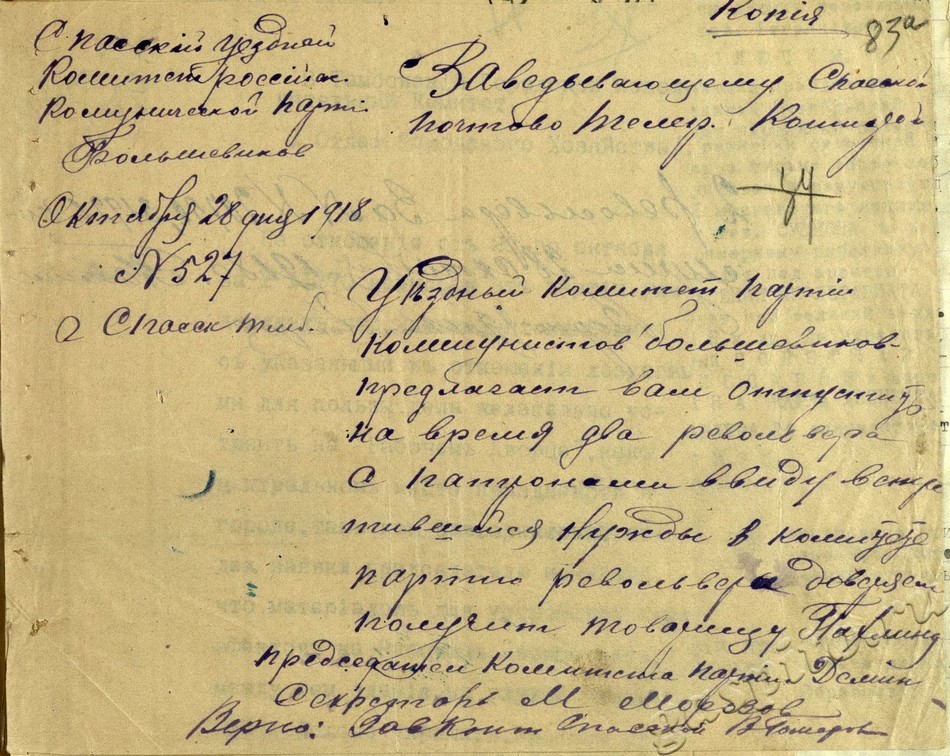 Копія
83а
Спасскій уездной
Комитет россійск.
Комунической парті
Большевиков
Октября 28 дня 1918
N 527
г Спасск тмб.
Заведывающему Спасской
почтово телегр. Конторой
Уѣздный комитет партіи
коммунистов большевиков
предлагает вам отпустить
на время два револьвера
с патронами ввиду встре
тившейся нужды в комитете
партіи револьверы доверяем
получит товарищу
председатель Комитета партіи Демин
Секретарь М Морозов
Верно: Зав Конт Спасской